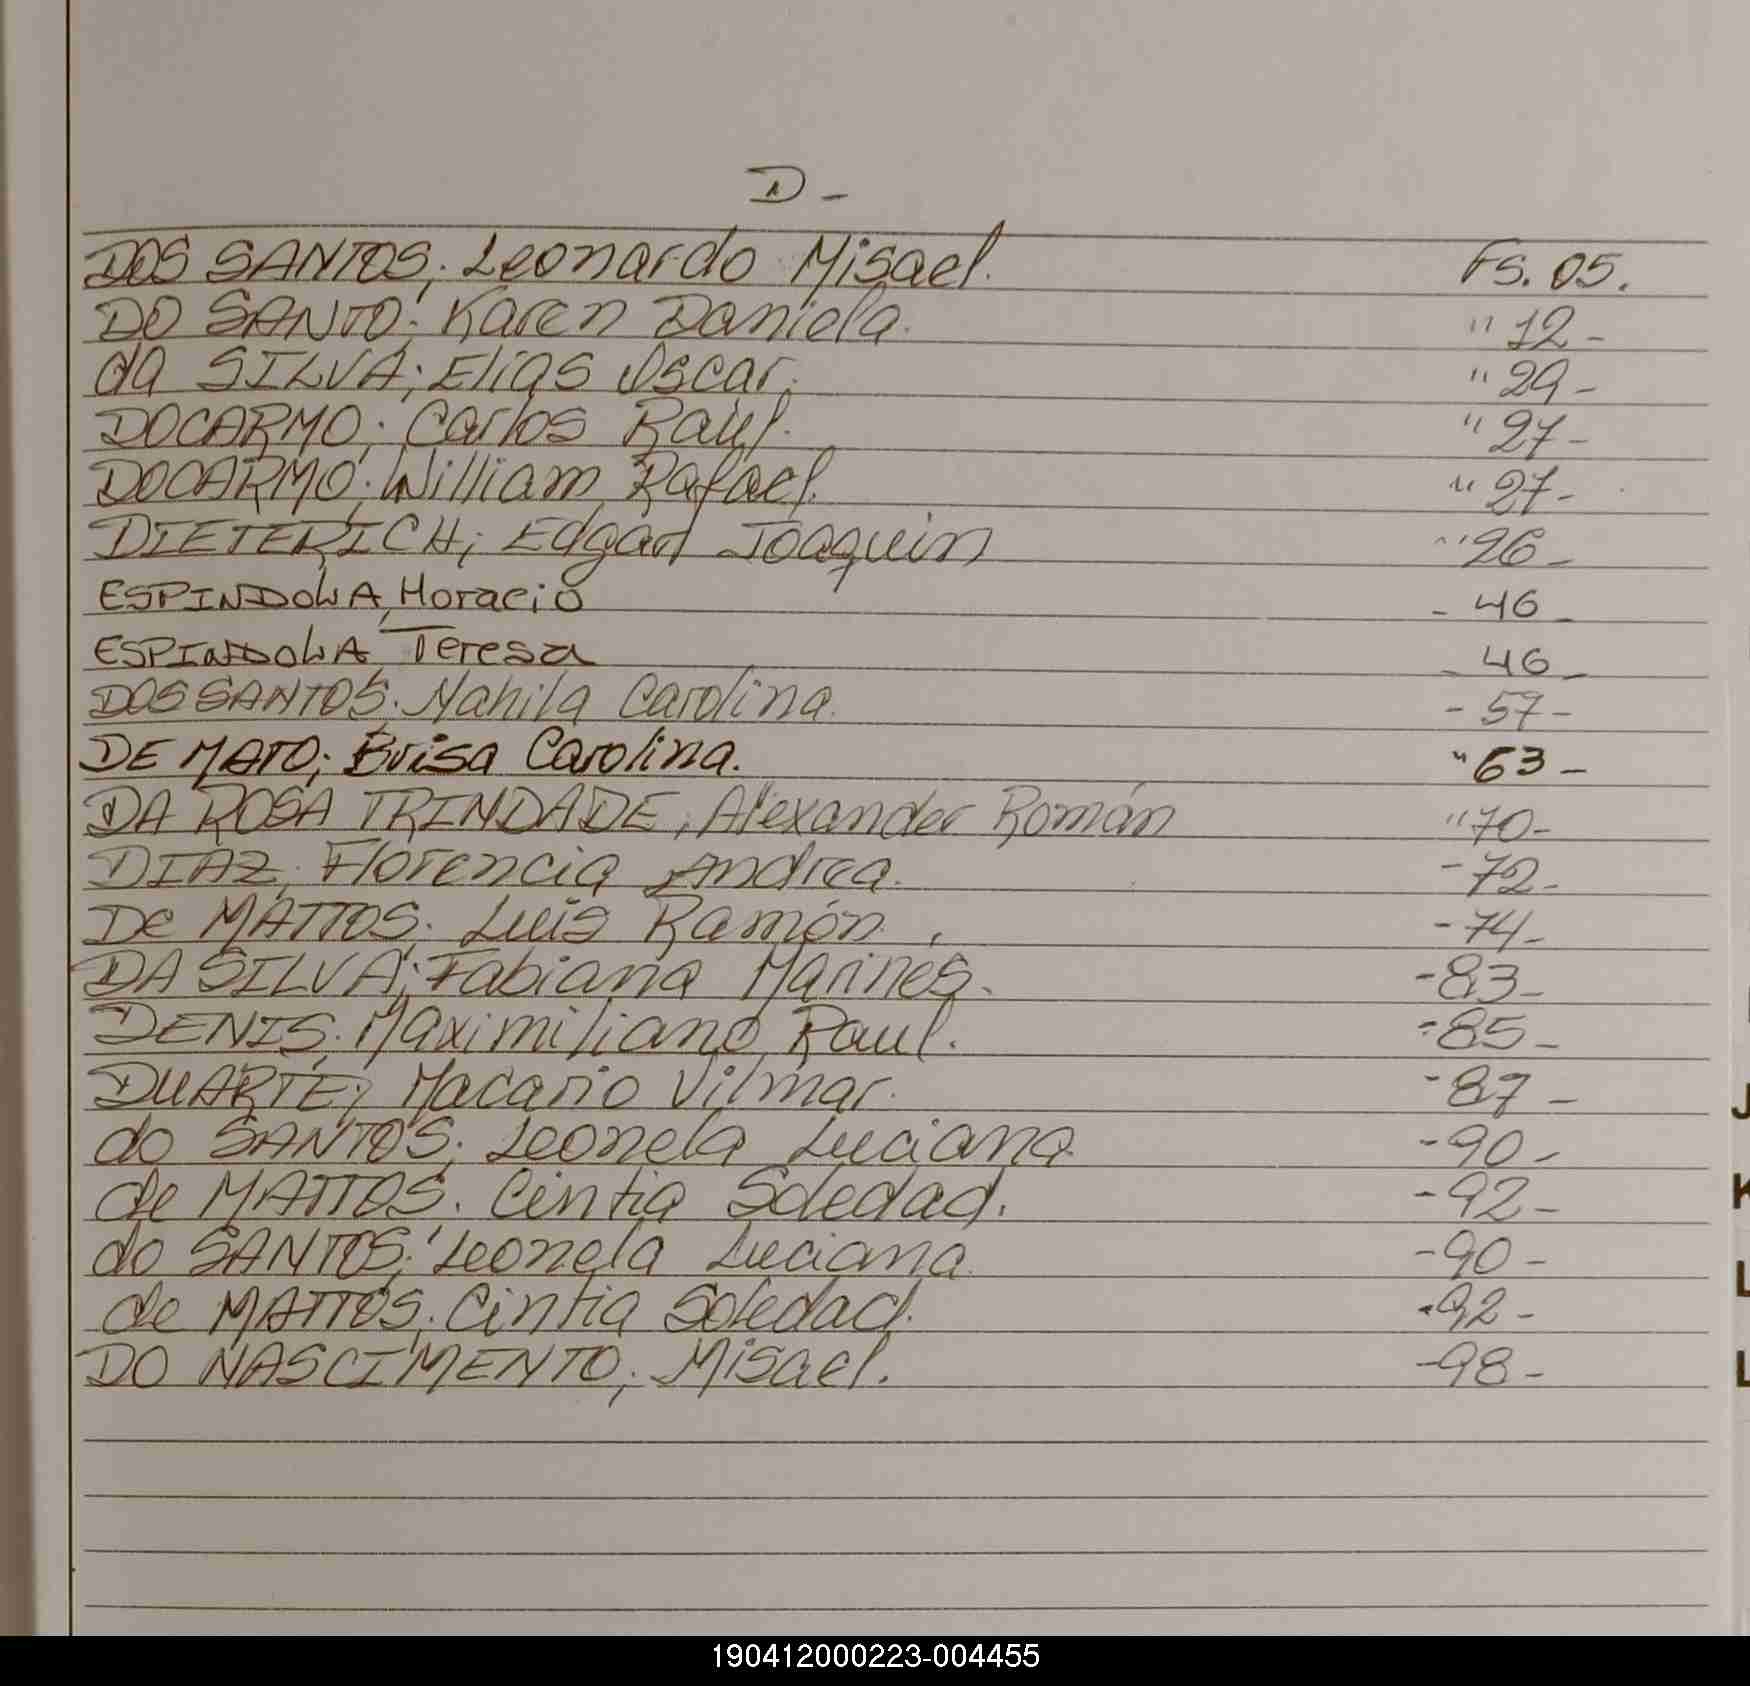 D -
DOS SANTOS; Leonardo Misael. Fs. 05.
DO SANTO; Karen Daniela. " 12 -
da SILVA; Elias Oscar. " 29 -
DOCARMO; Carlos Raúl. " 27 -
DOCARMO; William Rafael. " 27 -
DIETERICH; Edgard Joaquin " 26 -
ESPINDOLA, Horacio - 46 -
ESPINDOLA, Teresa - 46 -
DOS SANTOS; Nahila Carolina. - 57 -
DE MATO; Brisa Carolina. " 63 -
DA ROSA TRINDADE, Alexander Román " 70 -
DIAZ; Florencia Andrea. - 72 -
De MATTOS; Luis Ramón. - 74 -
DA SILVA; Fabiana Marines. - 83 -
DENIS; Maximiliano Raul. - 85 -
DUARTE; Macario Vilmar. - 87 -
do SANTOS; Leonela Luciana - 90 -
de MATTOS. Cintia Soledad. - 92 -
do SANTOS; Leonela Luciana. - 90 -
de MATTOS; Cintia Soledad. - 92 -
DO NASCIMENTO; Misael. - 98 -
J
K
L
L
190412000223-004455